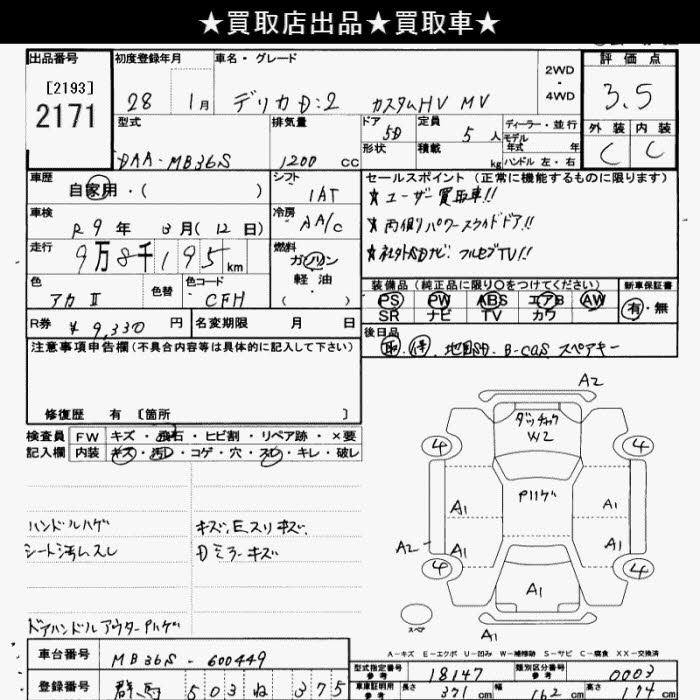 ★買取店出品★買取車★
出品番号 初度登録年月 車名・グレード 2WD・4WD 評価点
[2193]
2171
28 1月 デリカD:2 カスタムHV MV 3.5
型式 排気量 ドア 定員 ディーラー・並行 外装 内装
DAA-MB36S 1200 cc 5D 5人 モデル年式 年 C C
形状 積載 kg ハンドル 左・右
車歴 シフト セールスポイント (正常に機能するものに限ります)
自家用・( ) 1AT ★ユーザー買取車!!
車検 冷房 ★両側パワースライドドア!!
R9年 3月(12日) AA/C ★社外SDナビ フルセグTV!!
走行 燃料
9万8千195km ガソリン 軽油 ( )
装備品 (純正品に限り○をつけてください) 新車保証書
色 色替 色コード PS PW ABS エアB AW 有・無
アカⅡ CFH SR ナビ TV カワ
R券 ¥9,330円 名変期限 月 日 後日品
取.保. 地図SD. B-CAS スペアキー
注意事項申告欄 (不具合内容等は具体的に記入して下さい)
修復歴 有 [箇所 ]
検査員 FW キズ・飛石・ヒビ割・リペア跡・×要
記入欄 内装 キズ・汚レ・コゲ・穴・スレ・キレ・破レ
ハンドルハゲ キズ、Eスリキズ、
シート汚ムスレ Dミラーキズ
ドアハンドルアウターPハゲ
A2
ダッチャク
W2
4 4
Pハゲ
A1 A1
A2 A1 A1
4 4
A1
スペア A1
A-キズ E-エクボ U-凹み W-補修跡 S-サビ C-腐食 XX-交換済
車台番号 MB36S-600449
型式指定番号 参考 18147 類別区分番号 参考 0003
登録番号 群馬 503 ね 375
車庫証明用 参考 長さ 371 cm 幅 162 cm 高さ 174 cm